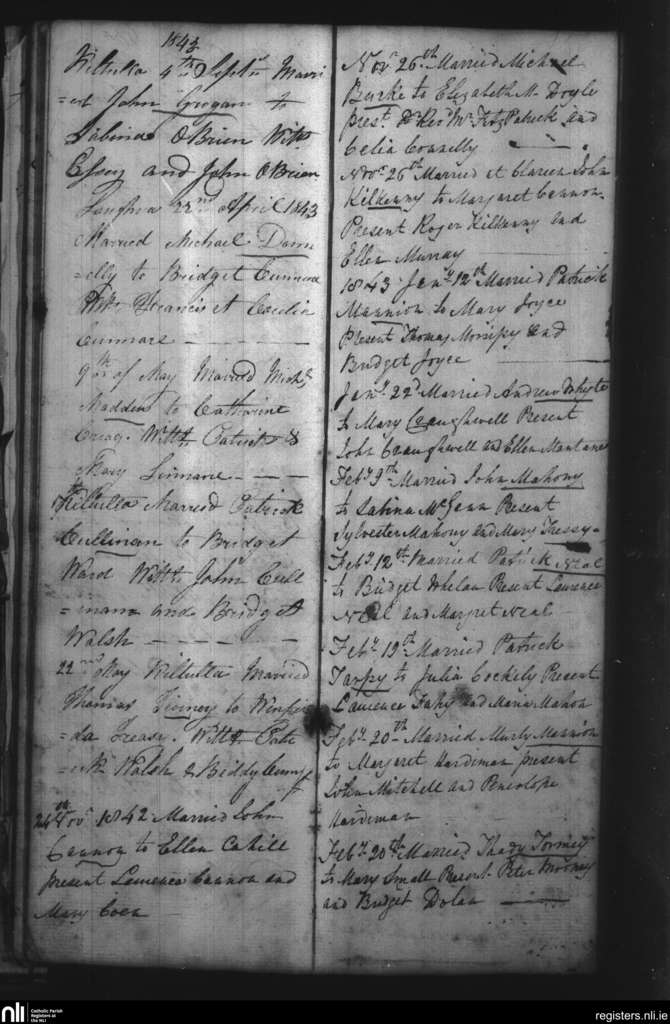 1843
Kiltulla 4th Septr Marri
=ed John Grogan to
Sabina O Brien Witts
and John O Brien
Loughrea 22nd April 1843
Married Michael Donn
=elly to Bridget Cunniare
Witts Francis et Cecilia
Cunniare
9th of May Married Michl
Madden to Catherine
Creag. Witts Patrick &
Mary Linnane
Kiltulla Married Patrick
Cullinan to Bridget
Ward Witts John Cull
=inan and Bridget
Walsh
22nd May Kiltulla Married
Thomas Tierney to Winifri
=da Treasy. Witts Patr
=ick Walsh & Biddy
24th Novr 1842 Married John
Cannon to Ellen Cahill
present Laurence Cannon and
Mary Coen
Novr 26th Married Michael
Burke to Elizabeth M. Doyle
prest Revd Mr FitzPatrick and
Celia Connelly
Novr 26th Married at Clareen John
Kilkenny to Margaret Cannon.
Present Roger Kilkenny and
Ellen Murray
1843 Jany 12th Married Patrick
Mannion to Mary Joyce
Present Thomas Morrissy and
Bridget Joyce
Jany 22d Married Andrew Whyte
to Mary Craughwell Present
John Craughwell and Ellen Mantane
Feby 9th Married John Mahony
to Sabina McGann Present
Sylvester Mahony and Mary Tressy
Feby 12th Married Patrick Neal
to Bridget Whelan Present Laurence
Neal and Margret Neal
Feby 19th Married Patrick
Tarpy to Julia Cockely Present
Laurence Fahy and Maria Mahon
Feby 20th Married Murty Mannion
to Margaret Hardiman present
John Mitchell and Penelope
Hardiman
Feby 20th Married Thady Tormey
to Mary Small Present Peter Mooney
and Bridget Dolan
nli
Catholic Parish
Registers at
the NLI
registers.nli.ie